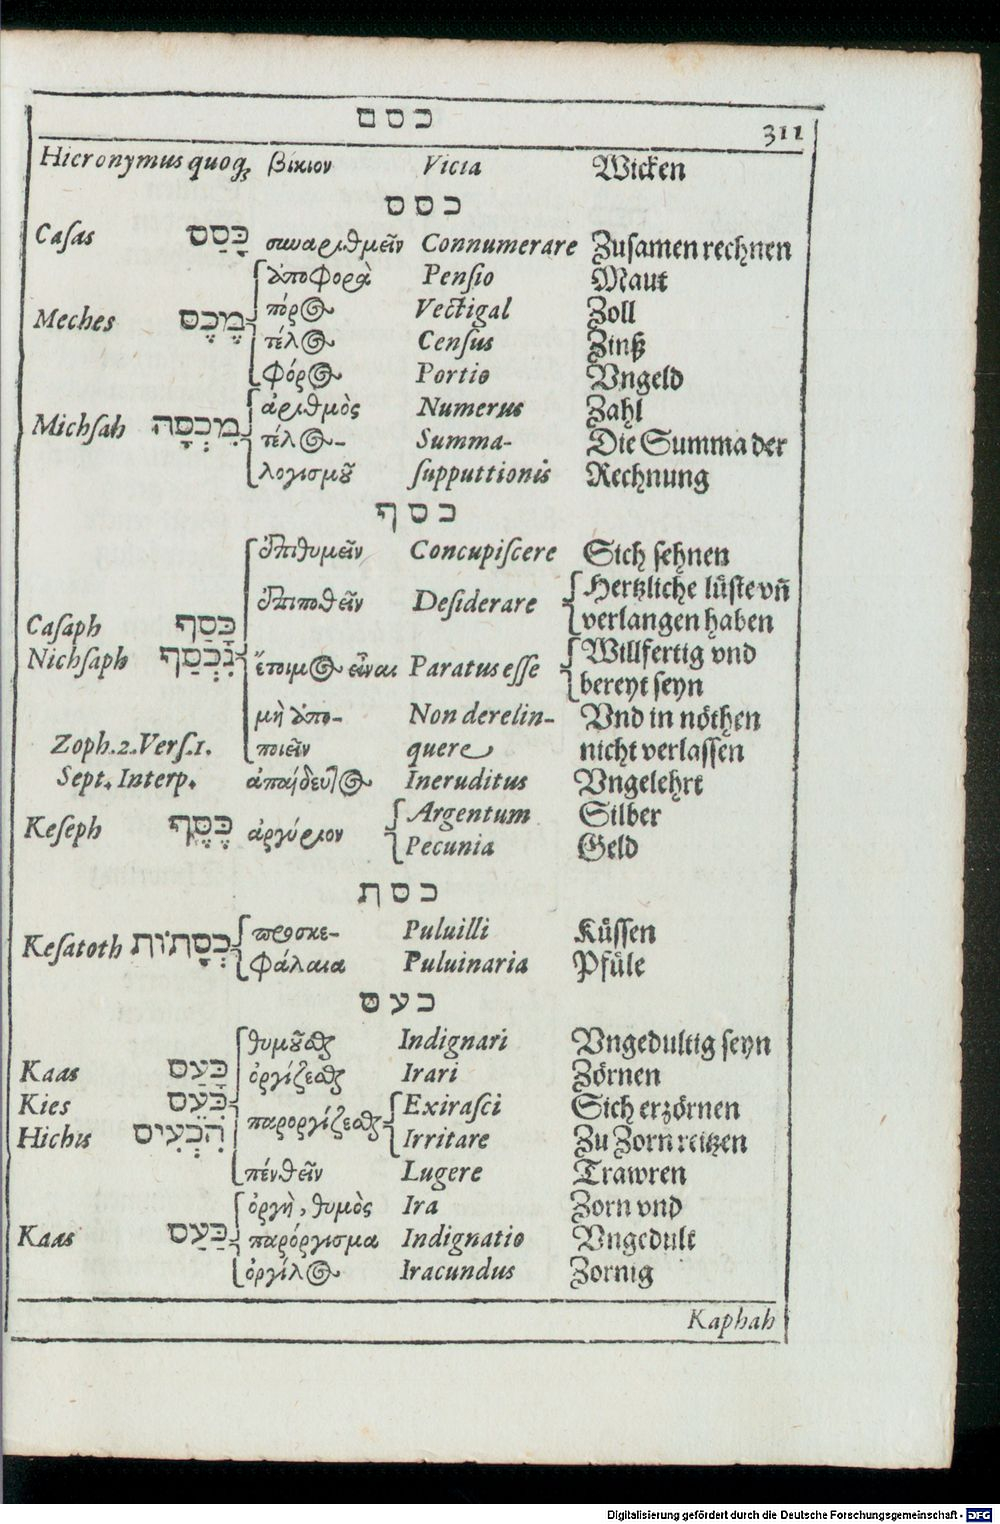 כסם
311
Hieronymus quoq; βίκιον Vicia Wicken
כסס
Casas כָּסַס συναριθμεῖν Connumerare Zusamen rechnen
ἀποφορὰ Pensio Maut
πόρος Vectigal Zoll
Meches מֶכֶס
τέλος Census Zinß
φόρος Portio Vngeld
ἀριθμὸς Numerus Zahl
Michsah מִכְסָה τέλος- Summa- Die Summa der
λογισμοῦ supputtionis Rechnung
כסף
ἐπιθυμεῖν Concupiscere Sich sehnen
ἐπιποθεῖν Desiderare Hertzliche lüste vñ
verlangen haben
Casaph כָּסַף
Nichsaph נִכְסַף ἕτοιμος εἶναι Paratus esse Willfertig vnd
bereyt seyn
μὴ ἀπο- Non derelin- Vnd in nöthen
Zoph.2.Vers.1. ποιεῖν quere nicht verlassen
Sept. Interp. ἀπαίδευτος Ineruditus Vngelehrt
Keseph כֶּסֶף ἀργύριον Argentum Silber
Pecunia Geld
כסת
Kesatoth כְּסָתוֹת προσκε- Puluilli Küssen
φάλαια Puluinaria Pfüle
כעס
θυμοῦσθαι Indignari Vngedultig seyn
Kaas כָּעַס ὀργίζεσθαι Irari Zörnen
Kies כִּעֵס παροργίζεσθαι Exirasci Sich erzörnen
Hichis הִכְעִיס Irritare Zu Zorn reitzen
πένθεῖν Lugere Trawren
ὀργὴ, θυμὸς Ira Zorn vnd
Kaas כַּעַס παρόργισμα Indignatio Vngedult
ὀργίλος Iracundus Zornig
Kaphah
Digitalisierung gefördert durch die Deutsche Forschungsgemeinschaft - DFG